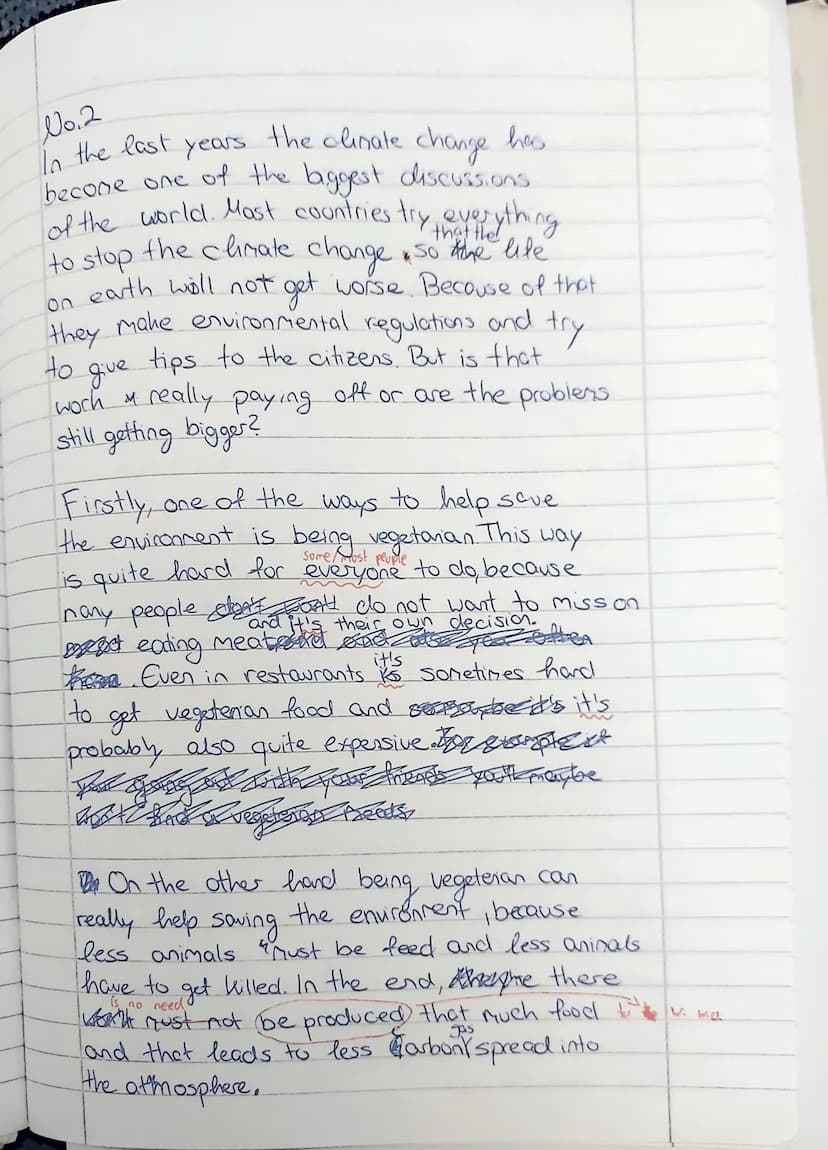 No.2
In the last years the climate change has
become one of the biggest discussions
of the world. Most countries try everything
to stop the climate change, so that the life
on earth will not get worse. Because of that
they make environmental regulations and try
to give tips to the citizens. But is that
work really paying off or are the problems
still getting bigger?
Firstly, one of the ways to help save
the environment is being vegetarian. This way
some/most people
is quite hard for everyone to do, because
many people do not want to miss on
and it's their own decision.
eating meat
. Even in restaurants it's sometimes hard
to get vegeterian food and it's
probably also quite expensive.
On the other hand being vegeterian can
really help saving the environment, because
less animals must be feed and less animals
have to get killed. In the end, there
is no need
must not be produced that much food
and that leads to less Carbon gas spread into
the atmosphere.